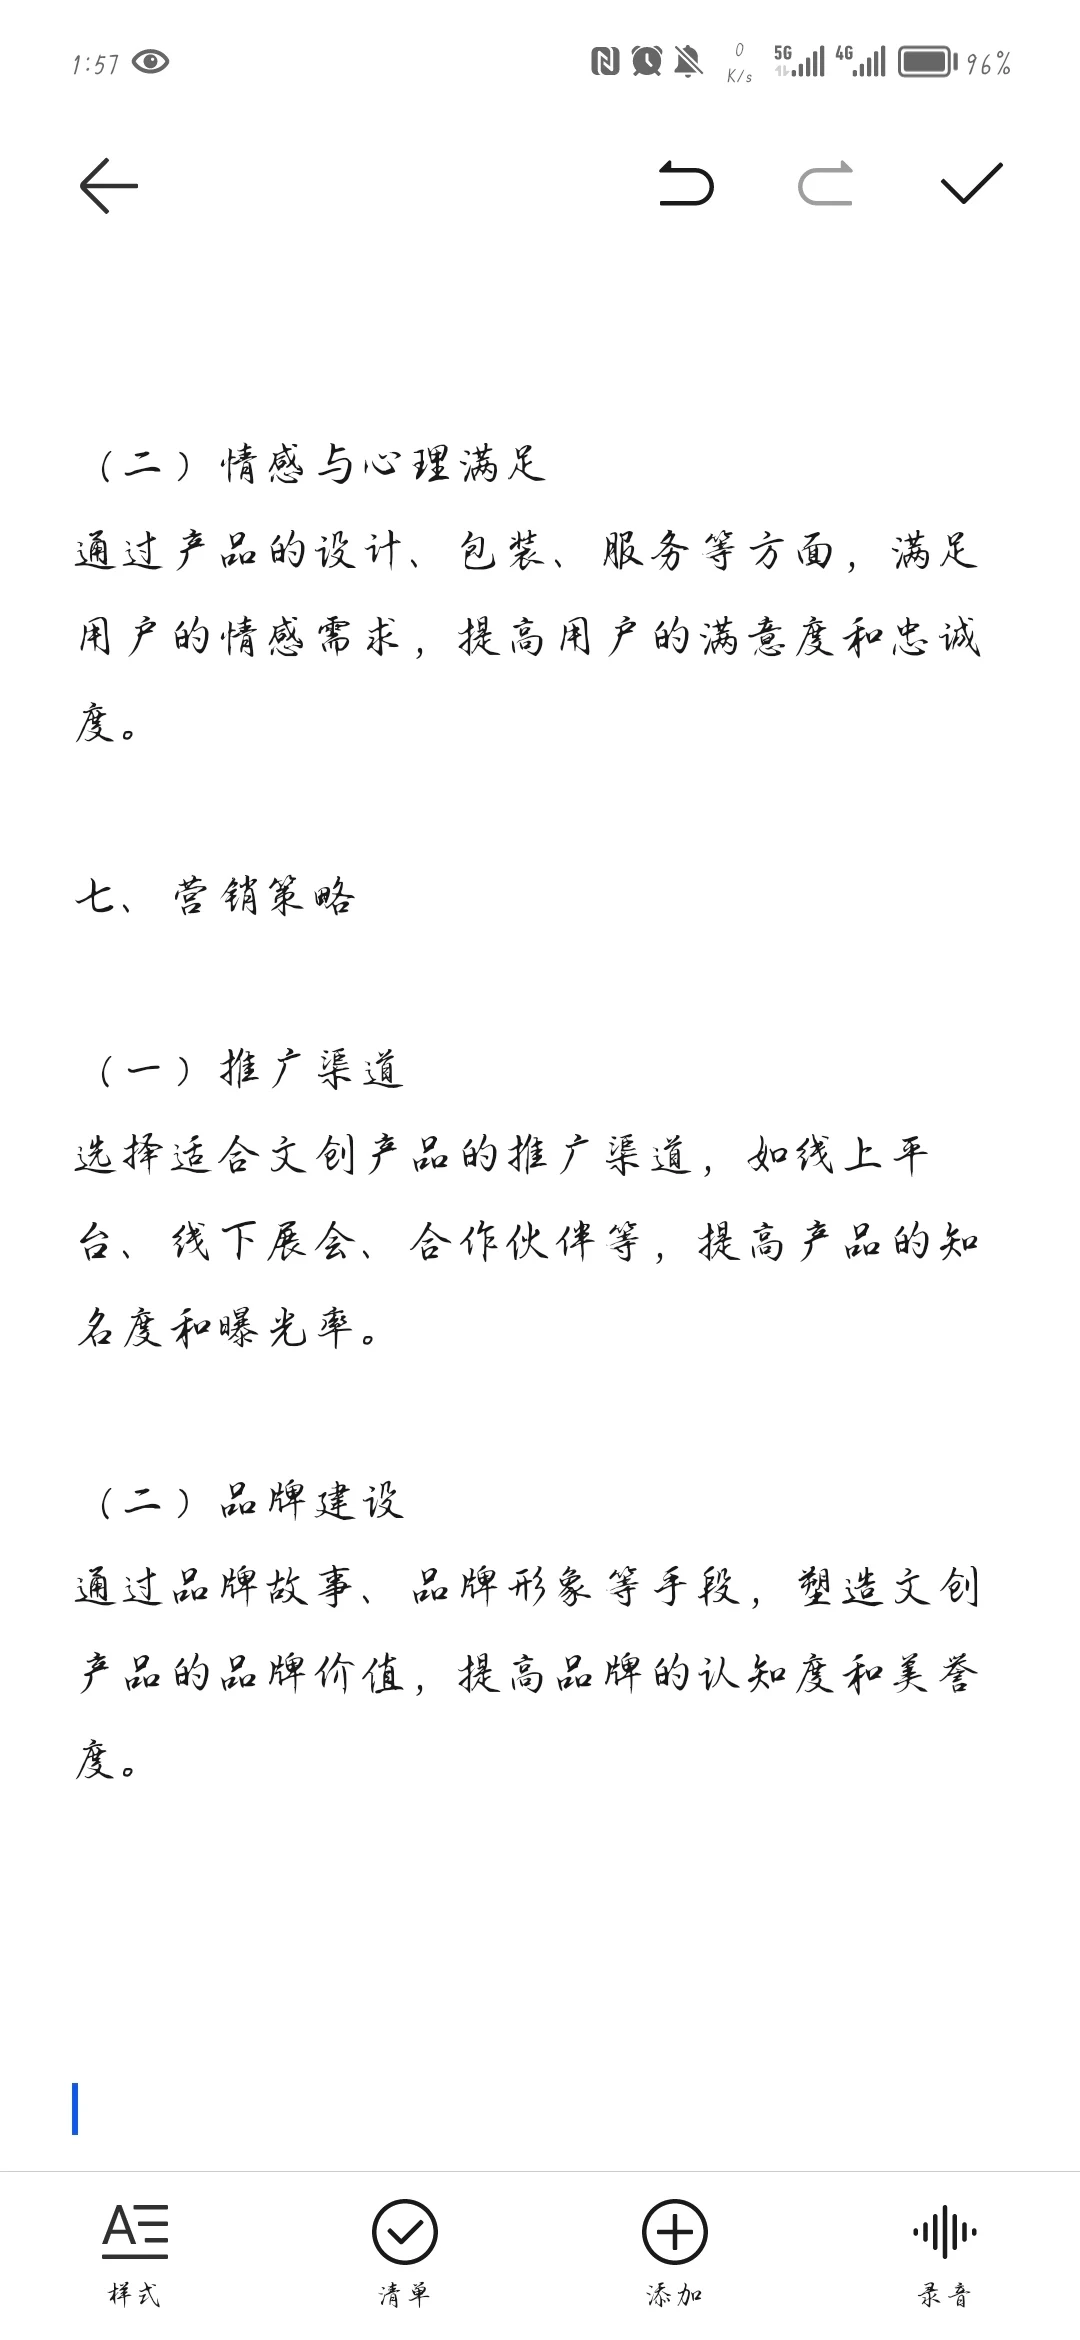 1:57
0
K/s
5G
4G
96%
（二）情感与心理满足
通过产品的设计、包装、服务等方面，满足
用户的情感需求，提高用户的满意度和忠诚
度。
七、营销策略
（一）推广渠道
选择适合文创产品的推广渠道，如线上平
台、线下展会、合作伙伴等，提高产品的知
名度和曝光率。
（二）品牌建设
通过品牌故事、品牌形象等手段，塑造文创
产品的品牌价值，提高品牌的认知度和美誉
度。
样式
清单
添加
录音